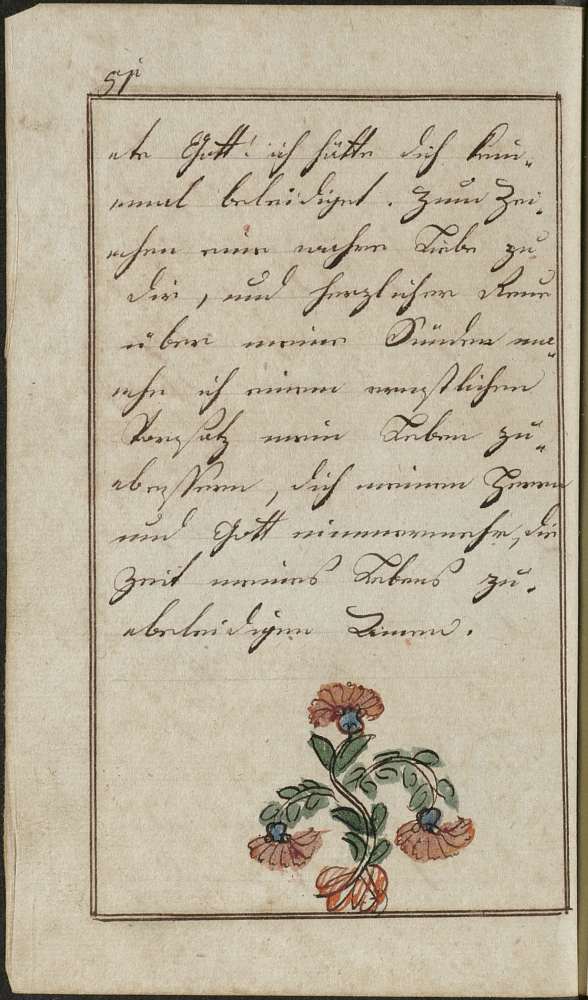 51
ete Gott! ich hätte dich kein„
emal beleidiget. Zum Zei„
chen eine wahre Liebe zu
dir, und herzlicher Reue
über meine Sünden ma„
che ich einen ernstlichen
Vorsatz mein Leben zu„
beßern, dich meinen Herrn
und Gott nimmermehr, die
Zeit meines Lebens zu„
beleidigen Amen.